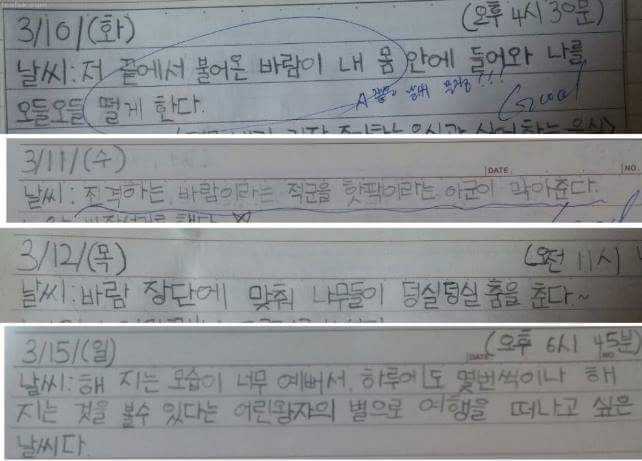 3/10/(화) (오후 4시 30분)
날씨: 저 끝에서 불어온 바람이 내 몸 안에 들어와 나를
오들오들 떨게 한다.
Good
3/11/(수)
DATE NO
날씨: 직격하는 바람이라는 적군을 핫팩이라는 아군이 막아준다.
3/12/(목) (오전 11시)
날씨: 바람 장단에 맞춰 나무들이 덩실덩실 춤을 춘다~
3/15/(일) (오후 6시 45분)
DATE NO
날씨: 해 지는 모습이 너무 예뻐서, 하루에도 몇번씩이나 해
지는 것을 볼수 있다는 어린왕자의 별으로 여행을 떠나고 싶은
날씨다.